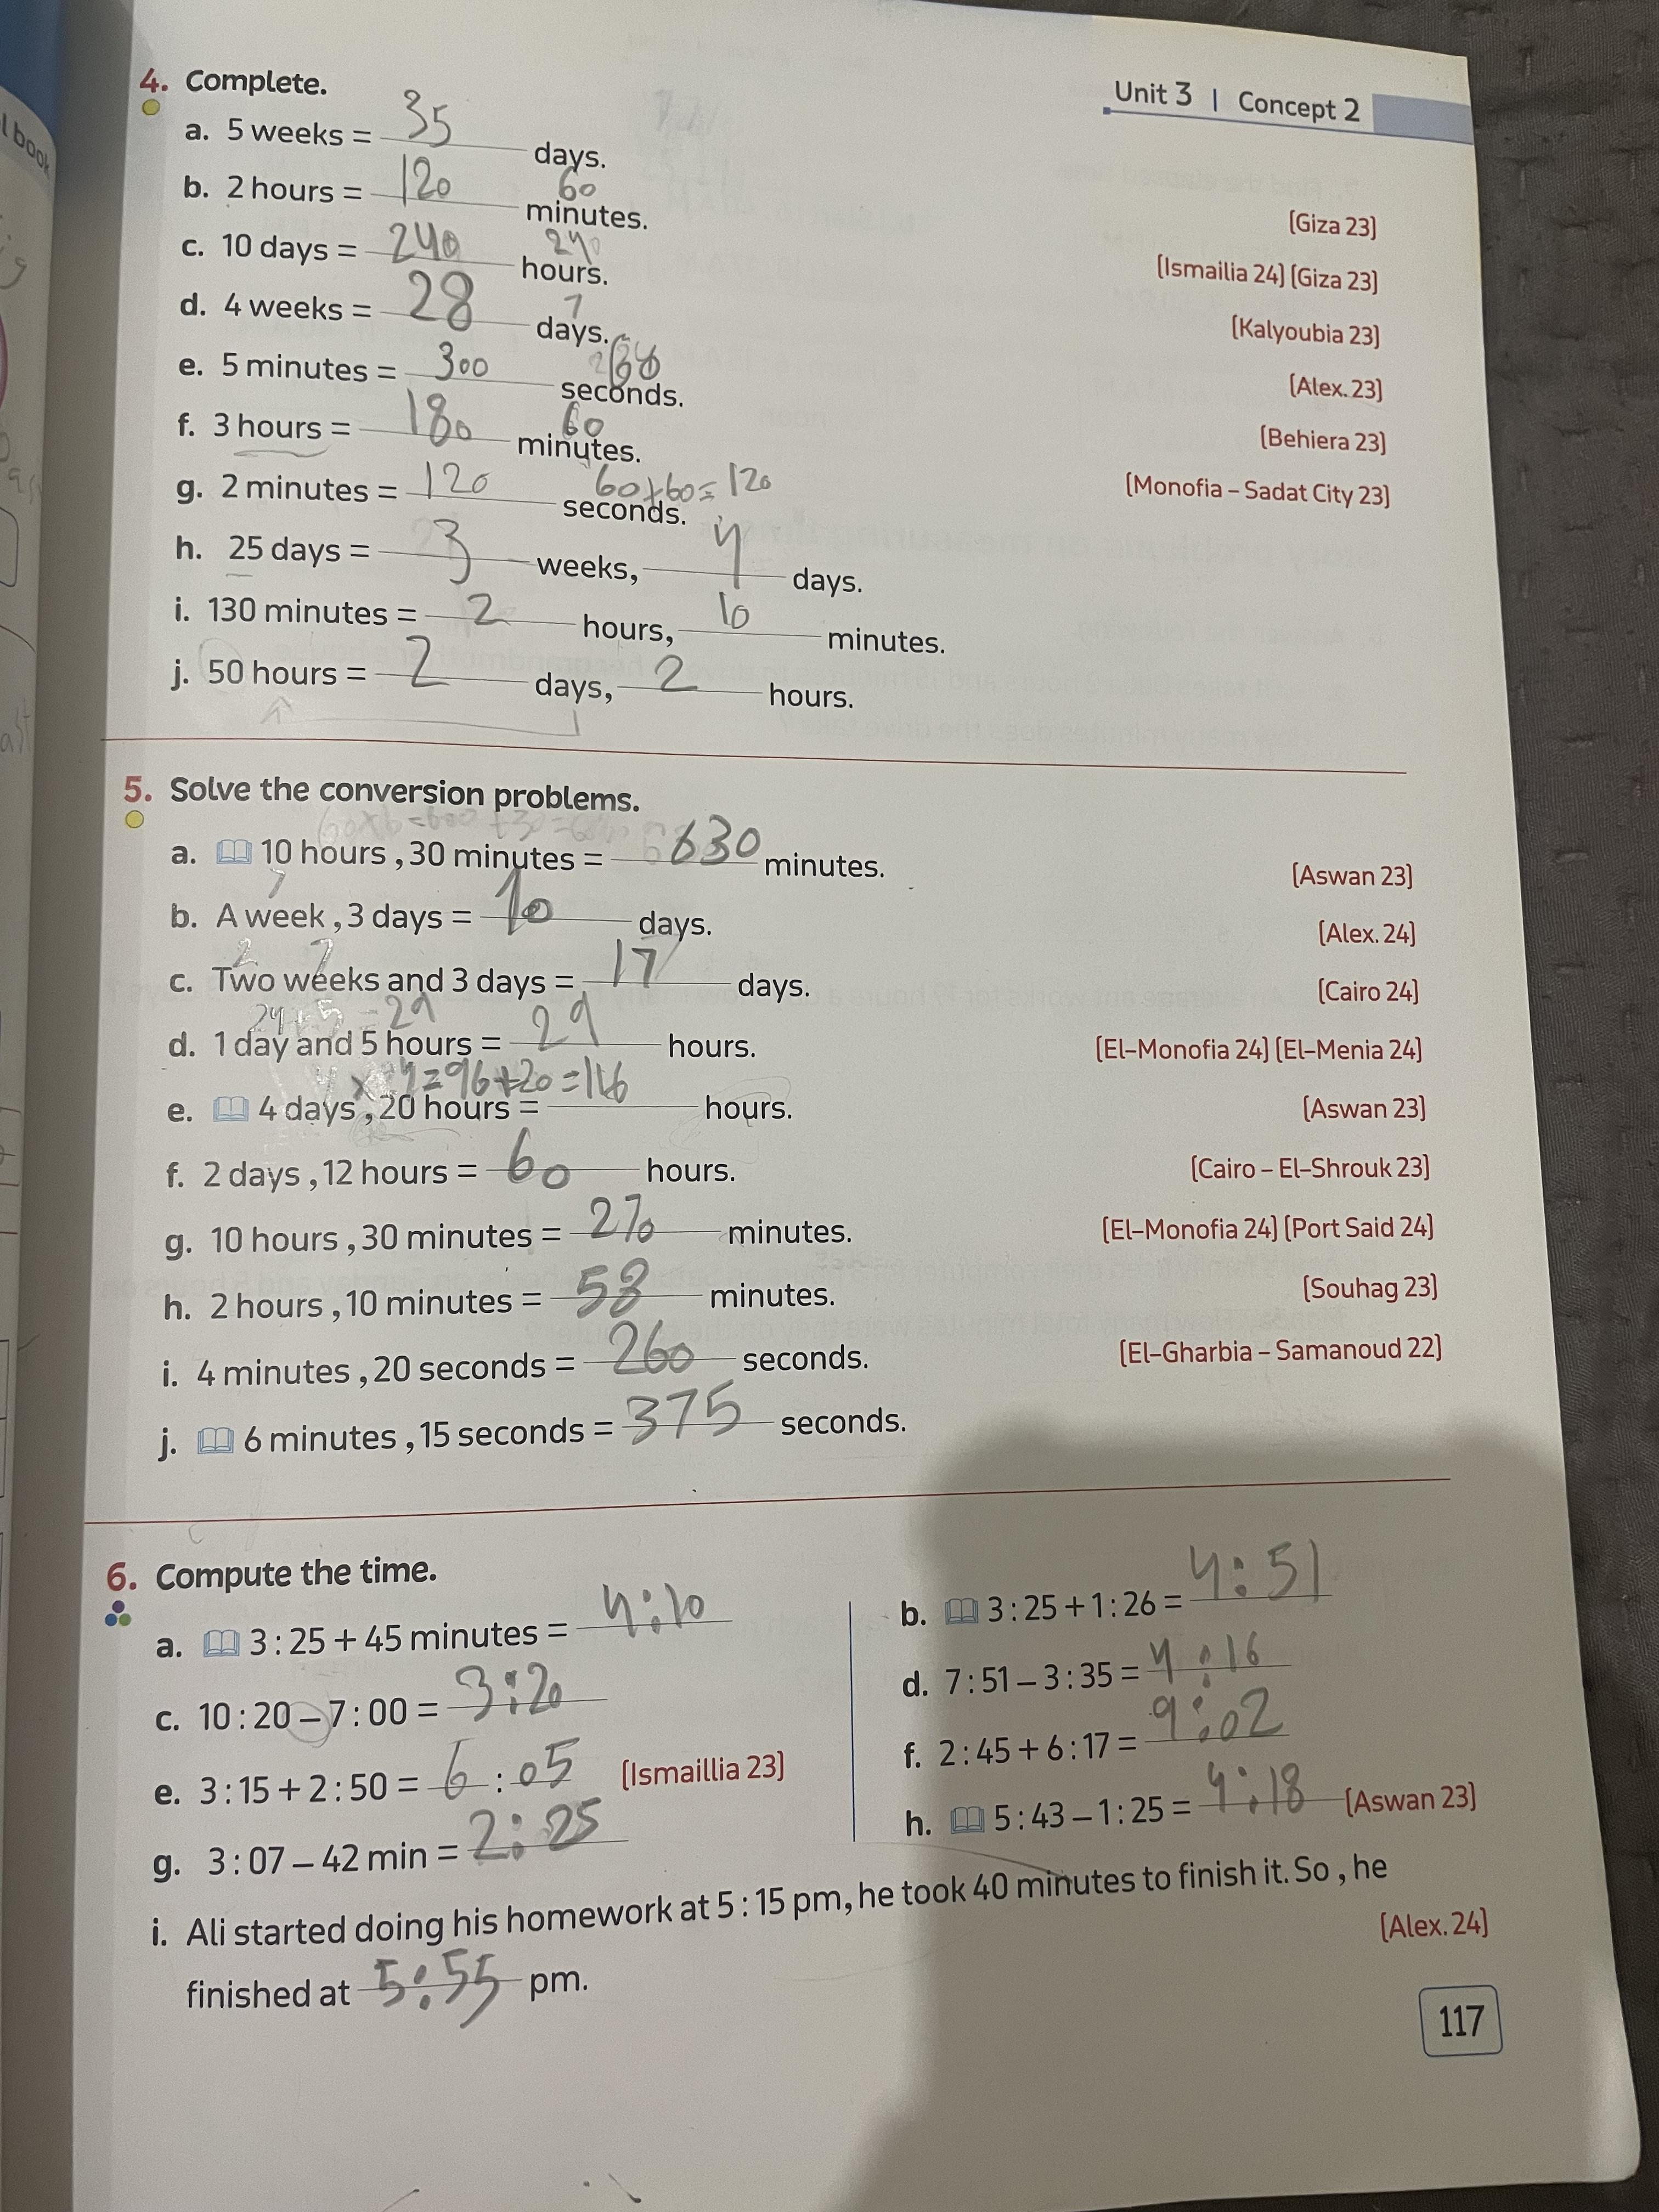 Unit 3 | Concept 2
4. Complete.
a. 5 weeks = 35 days.
b. 2 hours = 120 minutes. [Giza 23]
60
c. 10 days = 240 hours. [Ismailia 24] [Giza 23]
240
d. 4 weeks = 28 days. [Kalyoubia 23]
7
e. 5 minutes = 300 seconds. [Alex. 23]
f. 3 hours = 180 minutes. [Behiera 23]
60
g. 2 minutes = 120 seconds. [Monofia – Sadat City 23]
60+60=120
h. 25 days = 3 weeks, 4 days.
i. 130 minutes = 2 hours, 10 minutes.
j. 50 hours = 2 days, 2 hours.
5. Solve the conversion problems.
a. 10 hours , 30 minutes = 630 minutes. [Aswan 23]
7
b. A week , 3 days = 10 days. [Alex. 24]
2 7
c. Two weeks and 3 days = 17 days. [Cairo 24]
24+5 = 29
d. 1 day and 5 hours = 29 hours. [El–Monofia 24] [El–Menia 24]
=96+20=116
e. 4 days , 20 hours = hours. [Aswan 23]
f. 2 days , 12 hours = 60 hours. [Cairo – El–Shrouk 23]
g. 10 hours , 30 minutes = 270 minutes. [El–Monofia 24] [Port Said 24]
h. 2 hours , 10 minutes = 58 minutes. [Souhag 23]
i. 4 minutes , 20 seconds = 260 seconds. [El–Gharbia – Samanoud 22]
j. 6 minutes , 15 seconds = 375 seconds.
6. Compute the time.
a. 3 : 25 + 45 minutes = 4:10
b. 3 : 25 + 1 : 26 = 4:51
c. 10 : 20 – 7 : 00 = 3:20
d. 7 : 51 – 3 : 35 = 4:16
e. 3 : 15 + 2 : 50 = 6 : 05 [Ismaillia 23]
f. 2 : 45 + 6 : 17 = 9:02
g. 3 : 07 – 42 min = 2:25
h. 5 : 43 – 1 : 25 = 4:18 [Aswan 23]
i. Ali started doing his homework at 5 : 15 pm, he took 40 minutes to finish it. So , he
finished at 5:55 pm. [Alex. 24]
117